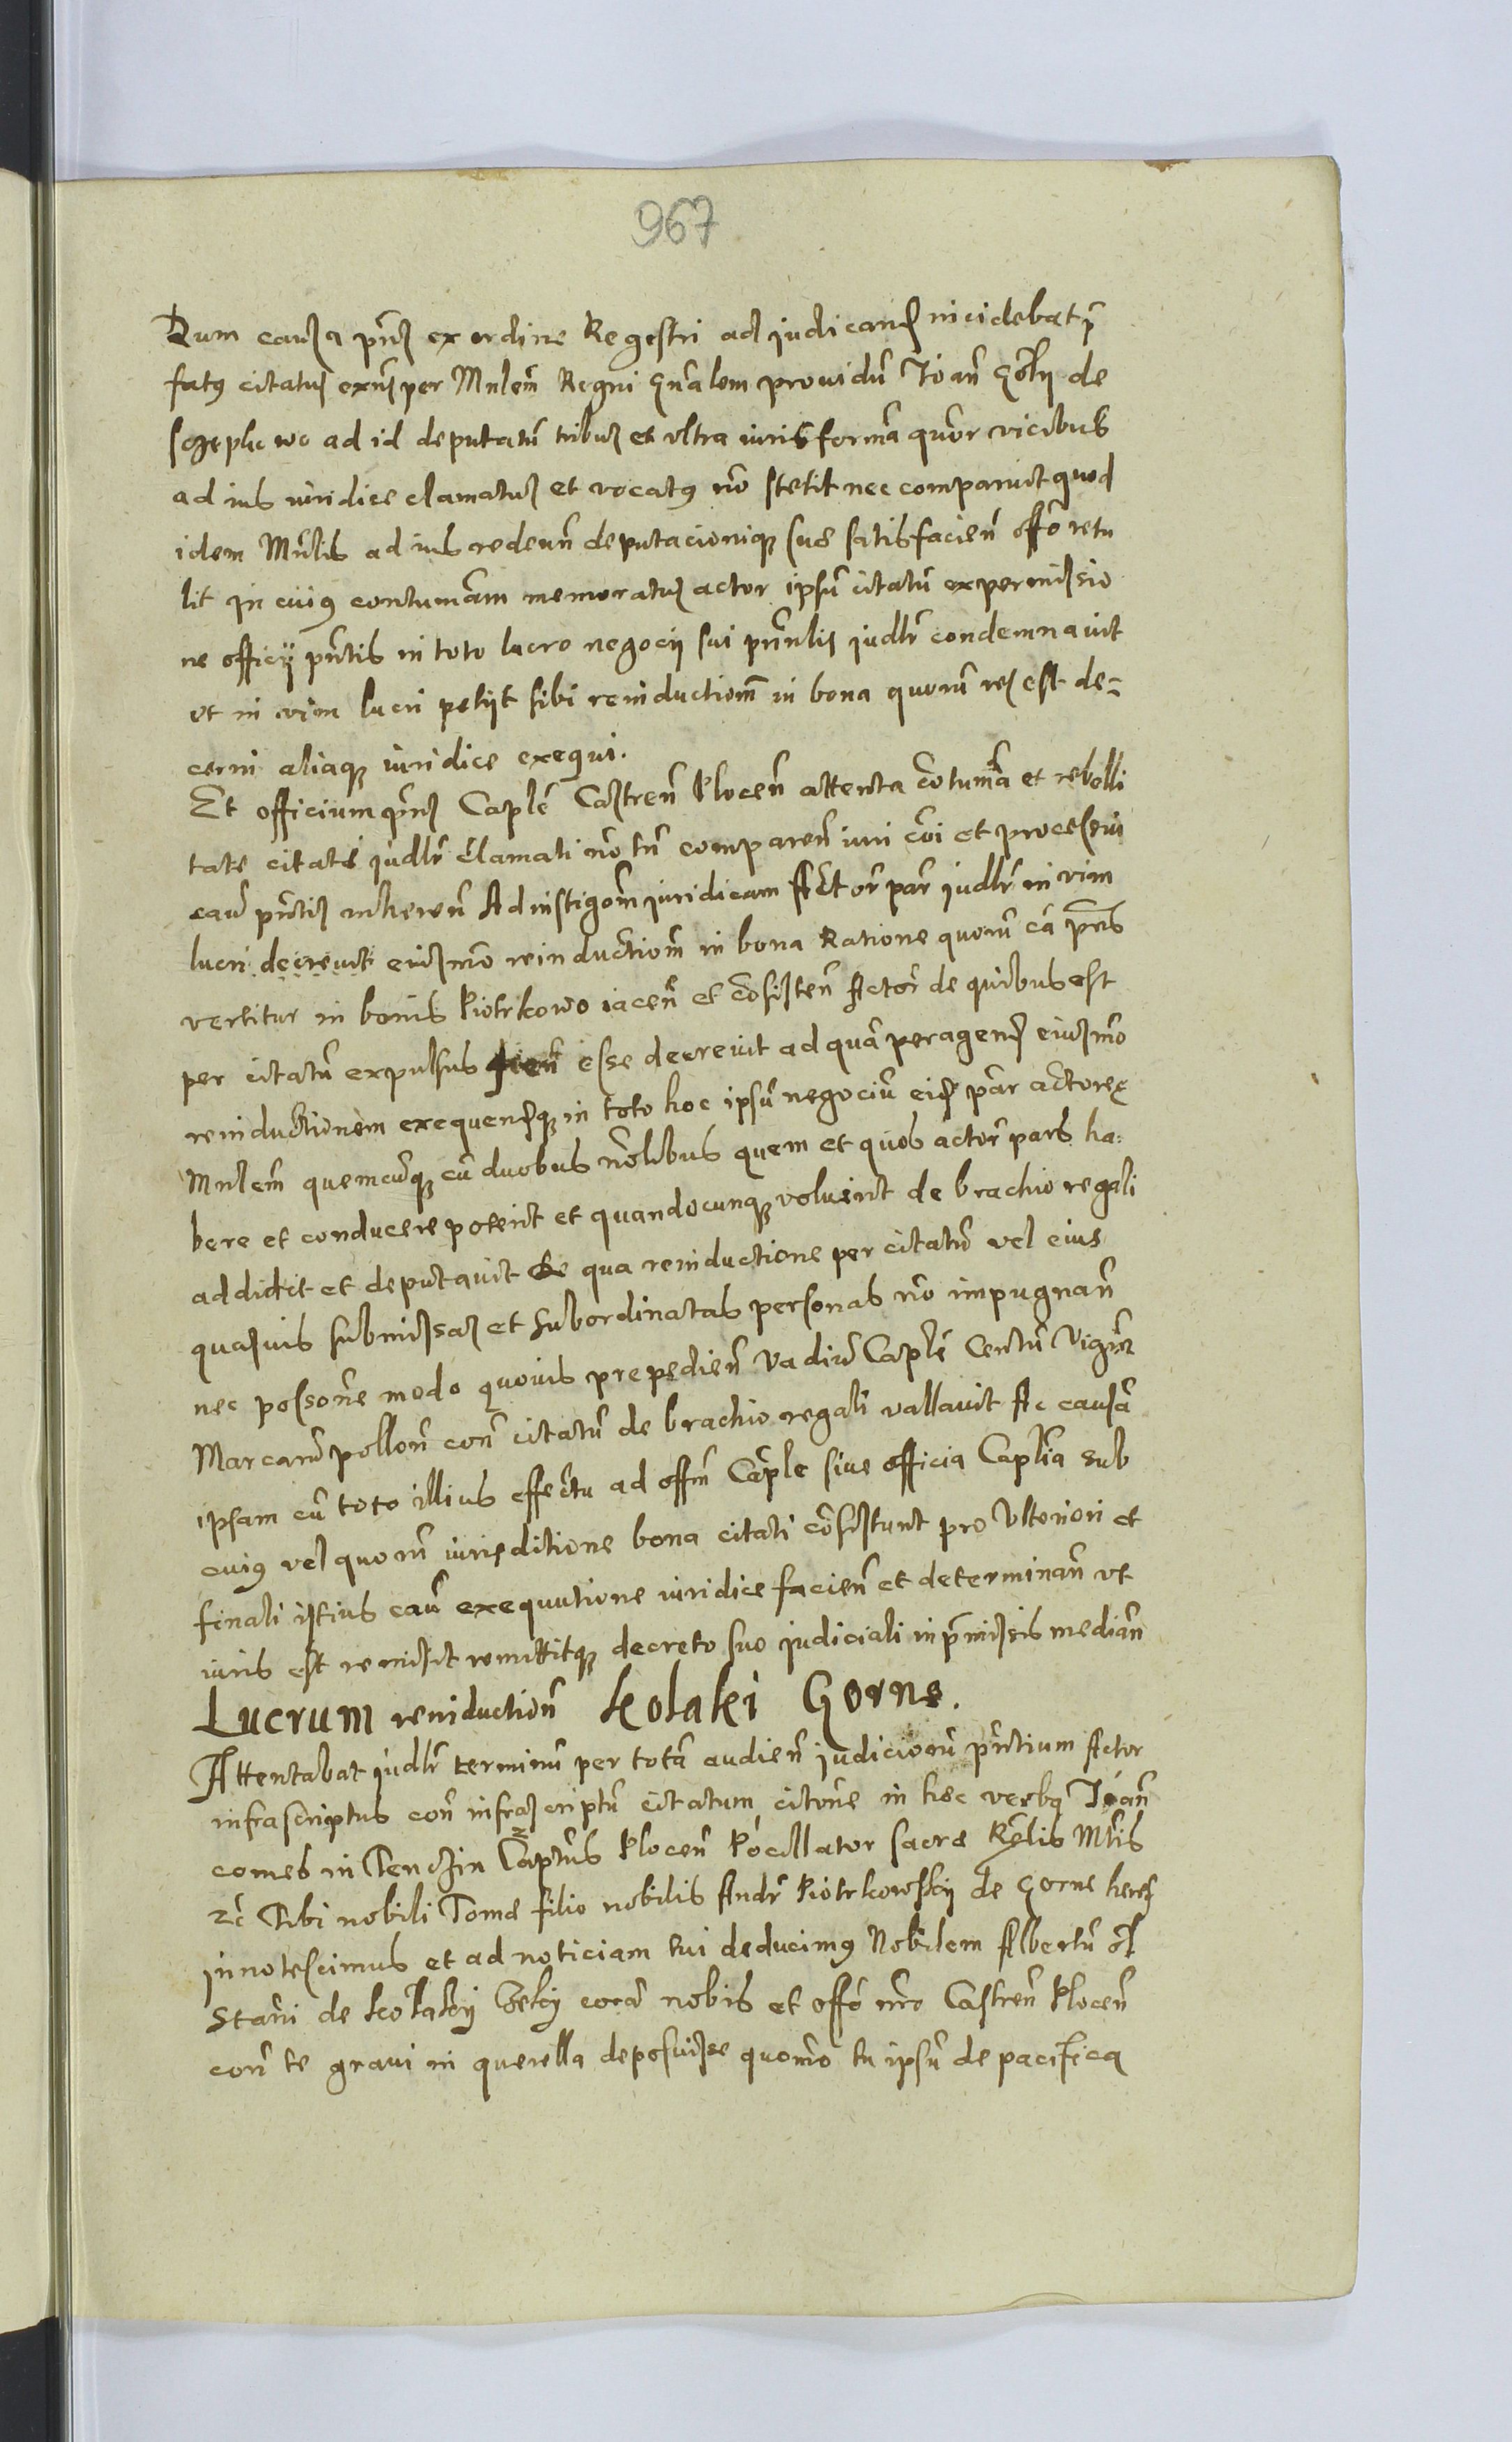 967
Dum causa pñs ex ordine Regestri ad iudicand incidebat p̃
fatus citatus exñs per Mnlem̃ Regni gñalem providũ Joañ Goły de
ad id deputatũ tribus et ultra iuris formã quõr vicibus
ad ius iuridice clamatus et vocatus nõ stetit nec comparuit quod
idem Mñlis ad ius redeuñ deputacionique sue satisfacieñ offõ retu
lit In cuius contumãm memoratus actor ipsũ citatũ ex permissio
ne officij pñtis in toto lucro negocij sui pñnlis iudlr̃ condemnavit
et in vim lucri petijt sibi reinductionẽ in bona quorũ res est de=
cerni aliaque iuridice exequi.
Et officium pñs Caplẽ Castreñ Ploceñ attenta cõtumã et rebelli
tate citati iudlr̃ clamati nõ tñ compareñ iuri cõi et processui
cau pñtis inhereñ Ad instigõm iuridicam Actor par iudlr̃ in vim
lucri decrevit eiusmõ reinductionẽ in bona Ratione quorũ cã pñs
vertitur in bonis Piotrkowo iaceñ et cõsisteñ Actõr de quibus est
per citatũ expulsus esse decrevit ad quã peragend eiusmõ
reinductionem exequendque in toto hoc ipsũ negociũ eid par actoree
Mnlem̃ quemcũque cũ duobus nõlibus quem et quos actõr pars ha=
bere et conducere poterit et quandocunque voluerit de brachio regali
addidit et deputavit De qua reinductione per citatũ vel eius
quasvis submissas et subordinatas personas nõ impugnañ
nec possõne modo quovis prepedieñ Vadiũ Caplẽ Centũ Viginti
Marcarũ pollõñ coñ citatũ de brachio regali vallavit Ac causã
ipsam cũ toto illius effectu ad offm̃ Caplẽ sive officia Caplia sub
cuius vel quorũ iurisditione bona citati cõsistunt pro Ulteriori et
finali istius cau exequutione iuridice facieñ et determinañ ut
iuris est remisit remittitque decreto suo iudiciali in p̃missis mediañ
Lucrum reinductioñ Kolaki Gorne.
Attentabat iudlr̃ terminũ per totã audieñ iudiciorũ pñtium Actor
infrascriptus coñ infrascriptũ citatum citõne in hec verba Joañ
comes in Tenczin Captñs Ploceñ Pocillator sacre Rẽlis Mtis
zc̃ Tibi nobili Tome filio nobilis Andr̃ Piotrkowsky de Gorne hered
innotescimus et ad noticiam tui deducimus Nobilem Albertũ ol̃
Stañi de Kolaky corã nobis et offõ nrõ Castreñ Ploceñ
coñ te gravi in querella deposuisse quomõ tu ipsũ de pacifica